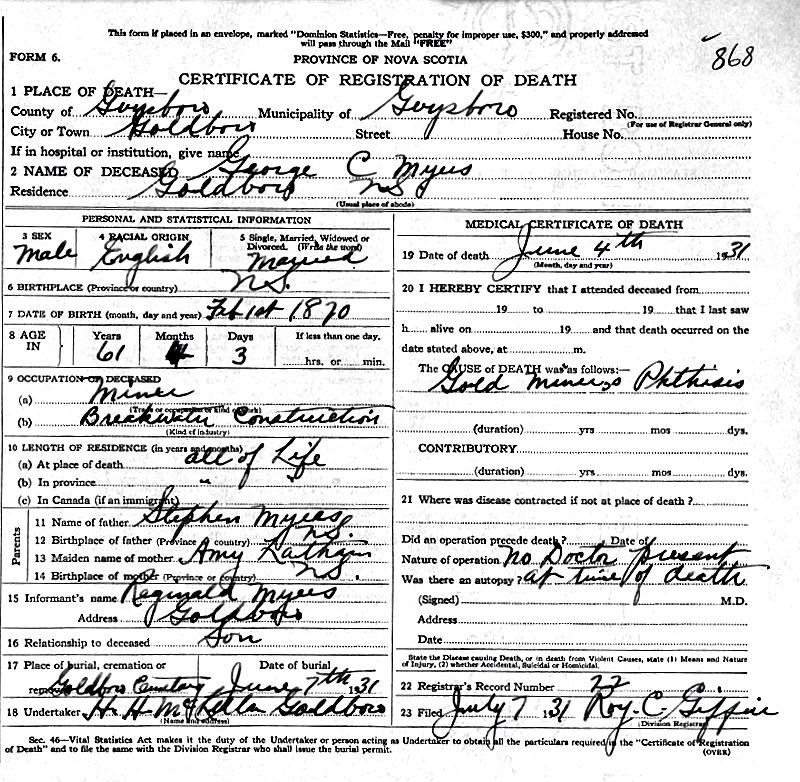 This form if placed in an envelope, marked "Dominion Statistics—Free, penalty for improper use, $300," and properly addressed
will pass through the Mail "FREE"
868
FORM 6.
PROVINCE OF NOVA SCOTIA
CERTIFICATE OF REGISTRATION OF DEATH
1 PLACE OF DEATH—
County of Guysboro Municipality of Guysboro Registered No.
(For use of Registrar General only)
City or Town Goldboro Street House No.
If in hospital or institution, give name
2 NAME OF DECEASED George C Myers
Residence Goldboro NS
(Usual place of abode)
PERSONAL AND STATISTICAL INFORMATION
3 SEX 4 RACIAL ORIGIN 5 Single, Married, Widowed or
Divorced. (Write the word)
Male English Married
6 BIRTHPLACE (Province or country) N.S.
7 DATE OF BIRTH (month, day and year) Feb 1st 1870
8 AGE IN Years Months Days If less than one day.
61 4 3 hrs. or min.
9 OCCUPATION OF DECEASED
(a) Miner
(Trade or occupation or kind of work)
(b) Breakwater Construction
(Kind of industry)
10 LENGTH OF RESIDENCE (in years and months)
(a) At place of death all of Life
(b) In province " "
(c) In Canada (if an immigrant)
Parents
11 Name of father Stephen Myers
12 Birthplace of father (Province or country) N.S.
13 Maiden name of mother Amy Latham
14 Birthplace of mother (Province or country) N.S.
15 Informant's name Reginald Myers
Address Goldboro
16 Relationship to deceased Son
17 Place of burial, cremation or Date of burial
removal Goldboro Cemetery June 7th 1931
18 Undertaker H. H. McKellan Goldboro
(Name and address)
MEDICAL CERTIFICATE OF DEATH
19 Date of death June 4th 1931
(Month, day and year)
20 I HEREBY CERTIFY that I attended deceased from
19 to 19 that I last saw
h alive on 19 and that death occurred on the
date stated above, at m.
The CAUSE of DEATH was as follows:
Gold Miners Phthisis
(duration) yrs mos dys.
CONTRIBUTORY
(duration) yrs. mos dys.
21 Where was disease contracted if not at place of death?
Did an operation precede death? Date of
Nature of operation No Doctor present
Was there an autopsy? at time of death
(Signed) M.D.
Address
Date
State the Disease causing Death, or in death from Violent Causes, state (1) Means and Nature
of Injury, (2) whether Accidental, Suicidal or Homicidal.
22 Registrar's Record Number 22
23 Filed July 7 1931 Roy C. Giffin
(Division Registrar)
Sec. 46—Vital Statistics Act makes it the duty of the Undertaker or person acting as Undertaker to obtain all the particulars required in the "Certificate of Registration
of Death" and to file the same with the Division Registrar who shall issue the burial permit.
(OVER)